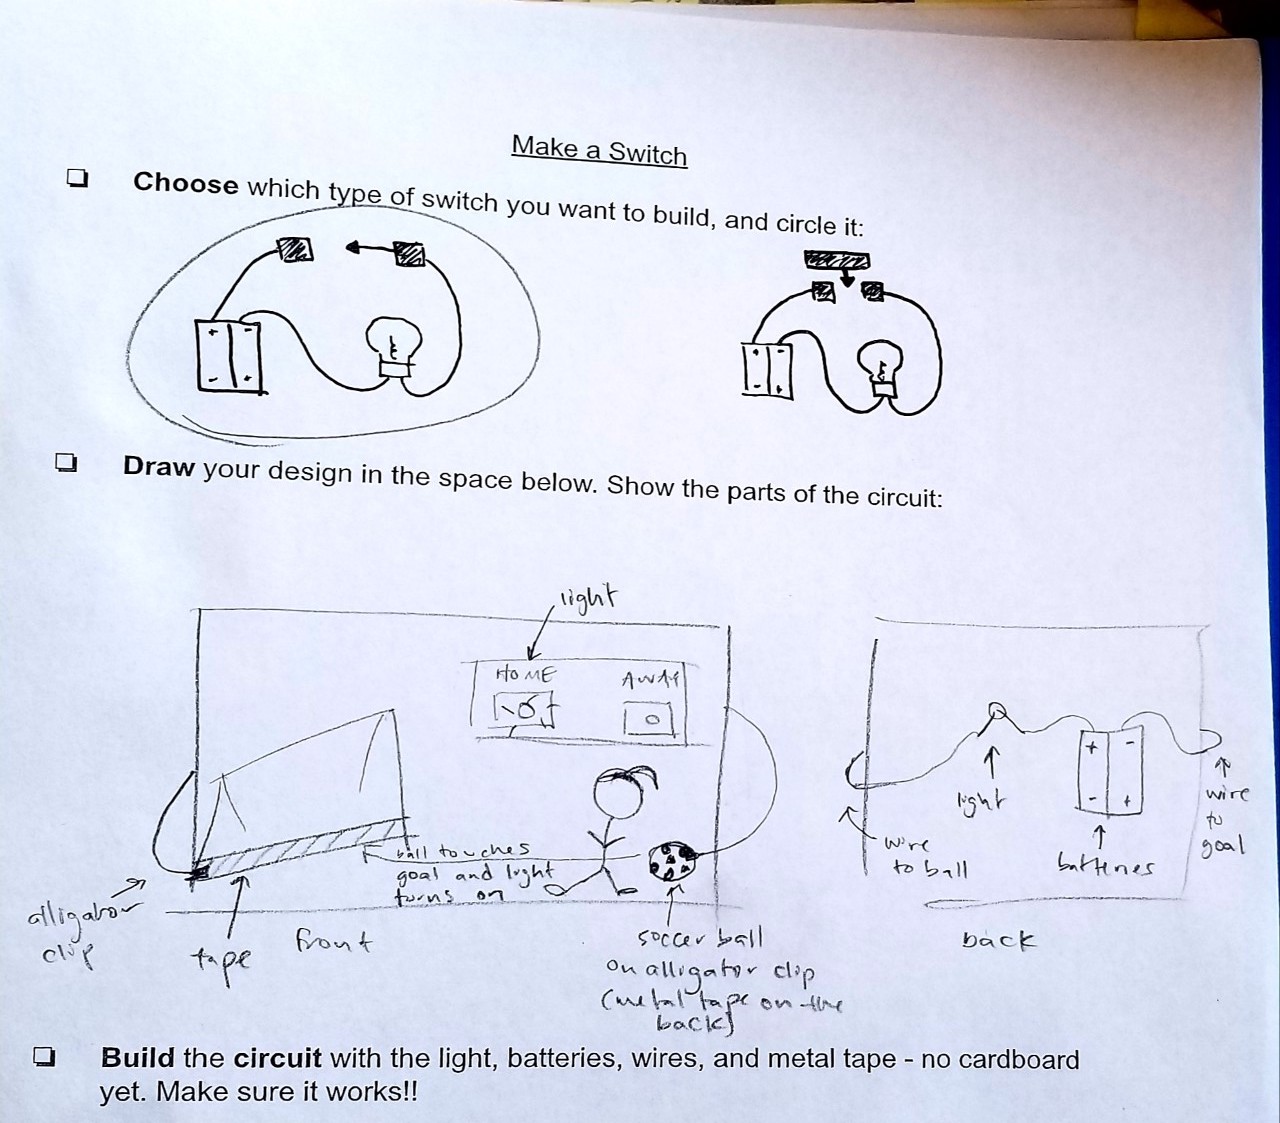 Make a Switch
Choose which type of switch you want to build, and circle it:
+ -
- +
+ -
- +
Draw your design in the space below. Show the parts of the circuit:
light
HOME AWAY
ball touches
goal and light
turns on
alligator
clip
tape
front
soccer ball
on alligator clip
(metal tape on the
back)
+ -
- +
light
wire
to ball
batteries
wire
to
goal
back
Build the circuit with the light, batteries, wires, and metal tape - no cardboard
yet. Make sure it works!!